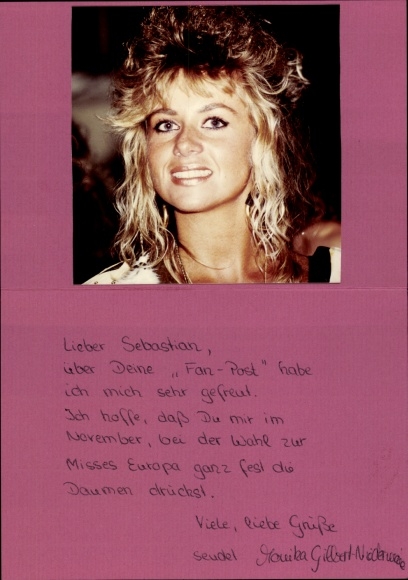 Lieber Sebastian,
über Deine „Fan-Post" habe
ich mich sehr gefreut.
Ich hoffe, daß Du mir im
November, bei der Wahl zur
Misses Europa ganz fest die
Daumen drückst.
Viele, liebe Grüße
sendet Monika Gilbert-